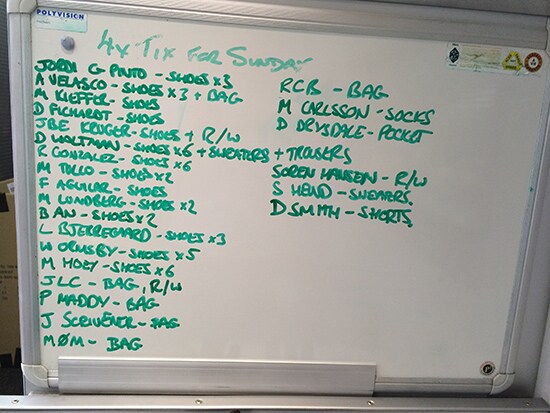 POLYVISION
4x TIX FOR SUNDAY
JORDI G PINTO - SHOES x3
A VELASCO - SHOES x3 + BAG
M KIEFFER - SHOES
D FICHARDT - SHOES
JBE KRUGER - SHOES + R/W
D WOLTMAN - SHOES x6 + SWEATERS + TROUSERS
R GONZALEZ - SHOES x6
M TULLO - SHOES x2
F AGUILAR - SHOES
M LUNDBERG - SHOES x2
B AN - SHOES x2
L BJERREGAARD - SHOES x3
W ORMSBY - SHOES x5
M HOEY - SHOES x6
JLC - BAG, R/W
P MADDY - BAG
J SCRIVENER - BAG
MØM - BAG
RCB - BAG
M CARLSSON - SOCKS
D DRYSDALE - POCKET
SOREN HANSEN - R/W
S HEND - SWEATERS
D SMITH - SHORTS